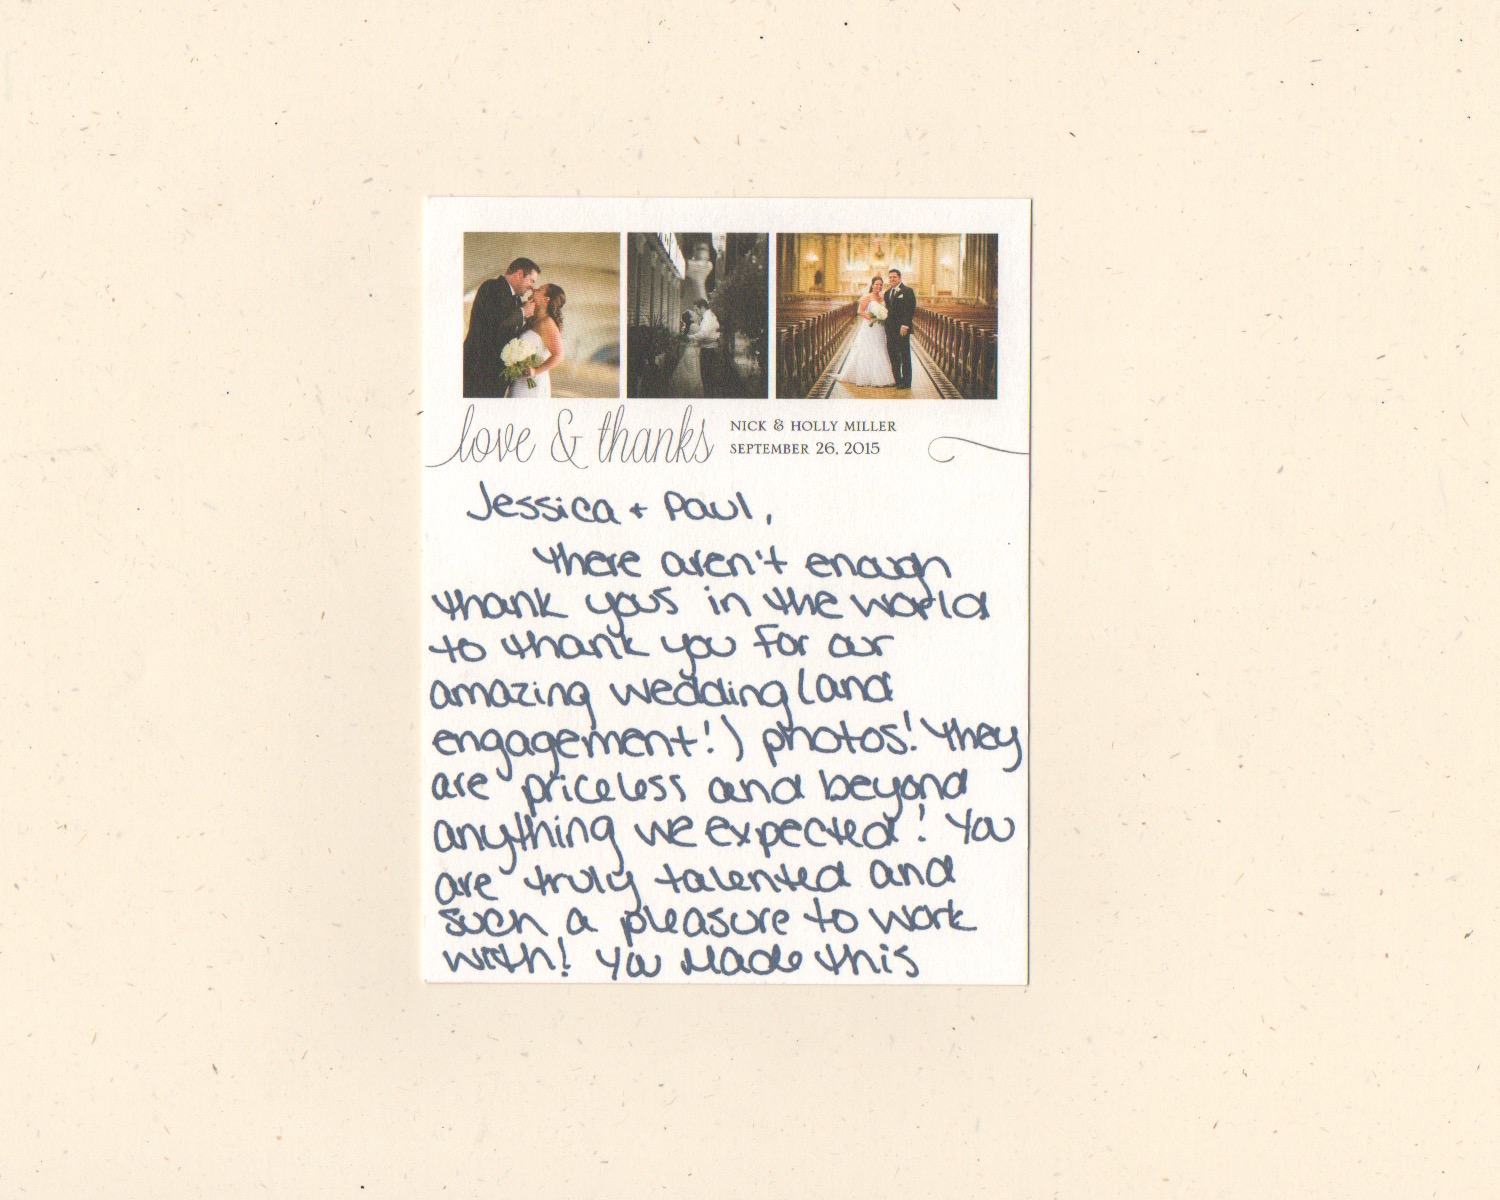 love & thanks
NICK & HOLLY MILLER
SEPTEMBER 26, 2015
Jessica + Paul,
There aren't enough
thank yous in the world
to thank you for our
amazing wedding (and
engagement!) photos! They
are priceless and beyond
anything we expected! You
are truly talented and
such a pleasure to work
with! You made this